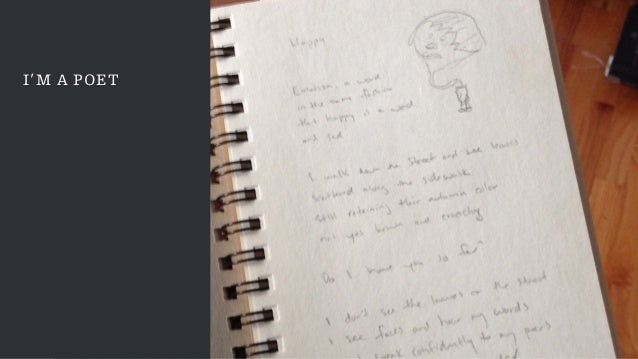 I'M A POET
Happy
Emotion, a word
in the same fashion
that happy is a word
and sad
I walk down the street and see leaves
scattered along the sidewalk
still retaining their autumn color
not yet brown and crunchy
Do I have you so far
I don't see the leaves or the street
I see faces and hear my words
I speak confidently to my peers